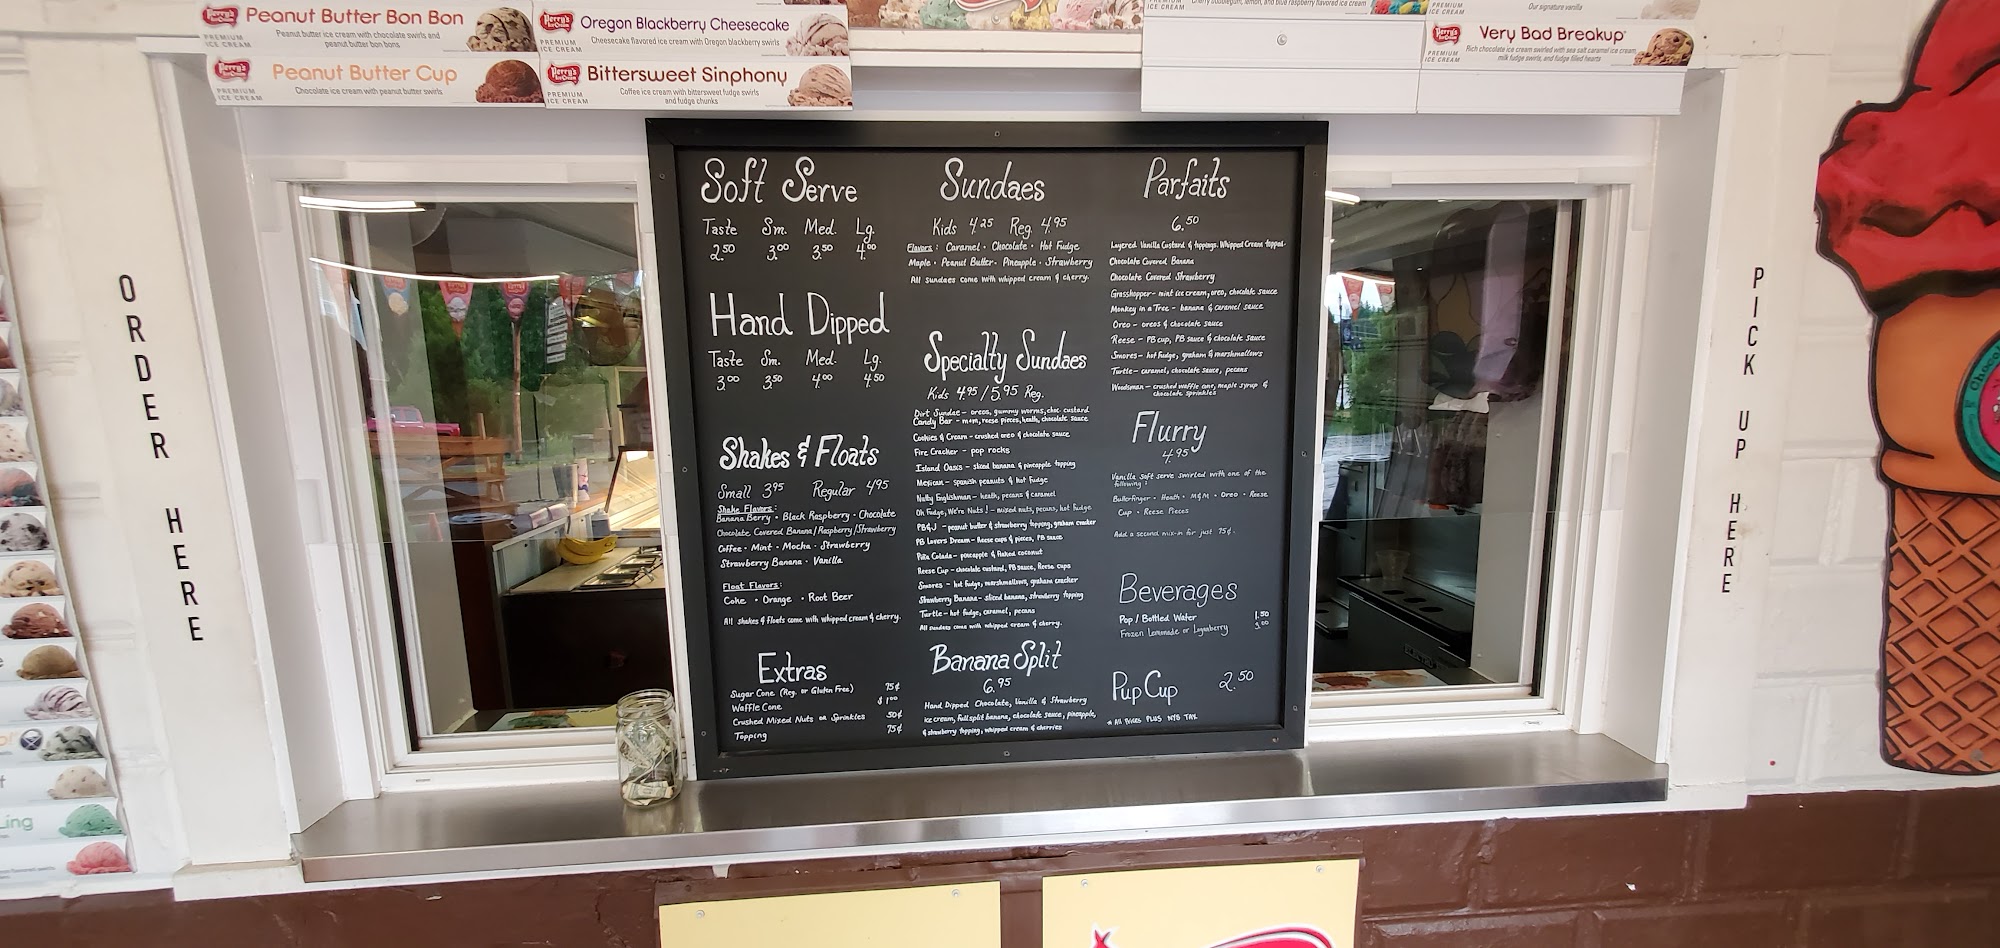 Perry's Ice Cream
PREMIUM
ICE CREAM
Peanut Butter Bon Bon
Peanut butter ice cream with chocolate swirls and
peanut butter bon bons
Perry's Ice Cream
PREMIUM
ICE CREAM
Oregon Blackberry Cheesecake
Cheesecake flavored ice cream with Oregon blackberry swirls
Perry's Ice Cream
PREMIUM
ICE CREAM
Peanut Butter Cup
Chocolate ice cream with peanut butter swirls
Perry's Ice Cream
PREMIUM
ICE CREAM
Bittersweet Sinphony
Coffee ice cream with bittersweet fudge swirls
and fudge chunks
PREMIUM
ICE CREAM
Cherry, bubblegum, lemon, and blue raspberry flavored ice cream
PREMIUM
ICE CREAM
Our signature vanilla
Perry's Ice Cream
PREMIUM
ICE CREAM
Very Bad Breakup
Rich chocolate ice cream swirled with sea salt caramel ice cream,
milk fudge swirls, and fudge filled hearts
ORDER HERE
Soft Serve
Taste Sm. Med. Lg.
2.50 3.00 3.50 4.00
Hand Dipped
Taste Sm. Med. Lg.
3.00 3.50 4.00 4.50
Shakes & Floats
Small 3.95 Regular 4.95
Shake Flavors:
Banana Berry • Black Raspberry • Chocolate
Chocolate Covered Banana/Raspberry/Strawberry
Coffee • Mint • Mocha • Strawberry
Strawberry Banana • Vanilla
Float Flavors:
Coke • Orange • Root Beer
All shakes & floats come with whipped cream & cherry.
Extras
Sugar Cone (Reg. or Gluten Free) 75¢
Waffle Cone $1.00
Crushed Mixed Nuts or Sprinkles 50¢
Topping 75¢
Sundaes
Kids 4.25 Reg. 4.95
Flavors: Caramel • Chocolate • Hot Fudge
Maple • Peanut Butter • Pineapple • Strawberry
All sundaes come with whipped cream & cherry.
Specialty Sundaes
Kids 4.95 / 5.95 Reg.
Dirt Sundae - oreos, gummy worms, choc. custard
Candy Bar - m&m, reese pieces, heath, chocolate sauce
Cookies & Cream - crushed oreo & chocolate sauce
Fire Cracker - pop rocks
Island Oasis - sliced banana & pineapple topping
Mexican - spanish peanuts & hot fudge
Nutty Englishman - heath, pecans & caramel
Oh Fudge, We're Nuts! - mixed nuts, pecans, hot fudge
PB&J - peanut butter & strawberry topping, graham cracker
PB Lovers Dream - Reese cups & pieces, PB sauce
Piña Colada - pineapple & flaked coconut
Reese Cup - chocolate custard, PB sauce, Reese cups
Smores - hot fudge, marshmallows, graham cracker
Strawberry Banana - sliced banana, strawberry topping
Turtle - hot fudge, caramel, pecans
All sundaes come with whipped cream & cherry.
Banana Split
6.95
Hand Dipped Chocolate, Vanilla & Strawberry
ice cream, full split banana, chocolate sauce, pineapple,
& strawberry topping, whipped cream & cherries
Parfaits
6.50
Layered Vanilla Custard & toppings. Whipped Cream topped.
Chocolate Covered Banana
Chocolate Covered Strawberry
Grasshopper - mint ice cream, oreo, chocolate sauce
Monkey in a Tree - banana & caramel sauce
Oreo - oreos & chocolate sauce
Reese - PB cup, PB sauce & chocolate sauce
Smores - hot fudge, graham & marshmallows
Turtle - caramel, chocolate sauce, pecans
Woodsman - crushed waffle cone, maple syrup &
chocolate sprinkles
Flurry
4.95
Vanilla soft serve swirled with one of the
following:
Butterfinger • Heath • M&M • Oreo • Reese
Cup • Reese Pieces
Add a second mix-in for just 75¢.
Beverages
Pop / Bottled Water 1.50
Frozen Lemonade or Loganberry 3.00
Pup Cup 2.50
* All Prices PLUS NYS TAX
PICK UP HERE
Ling